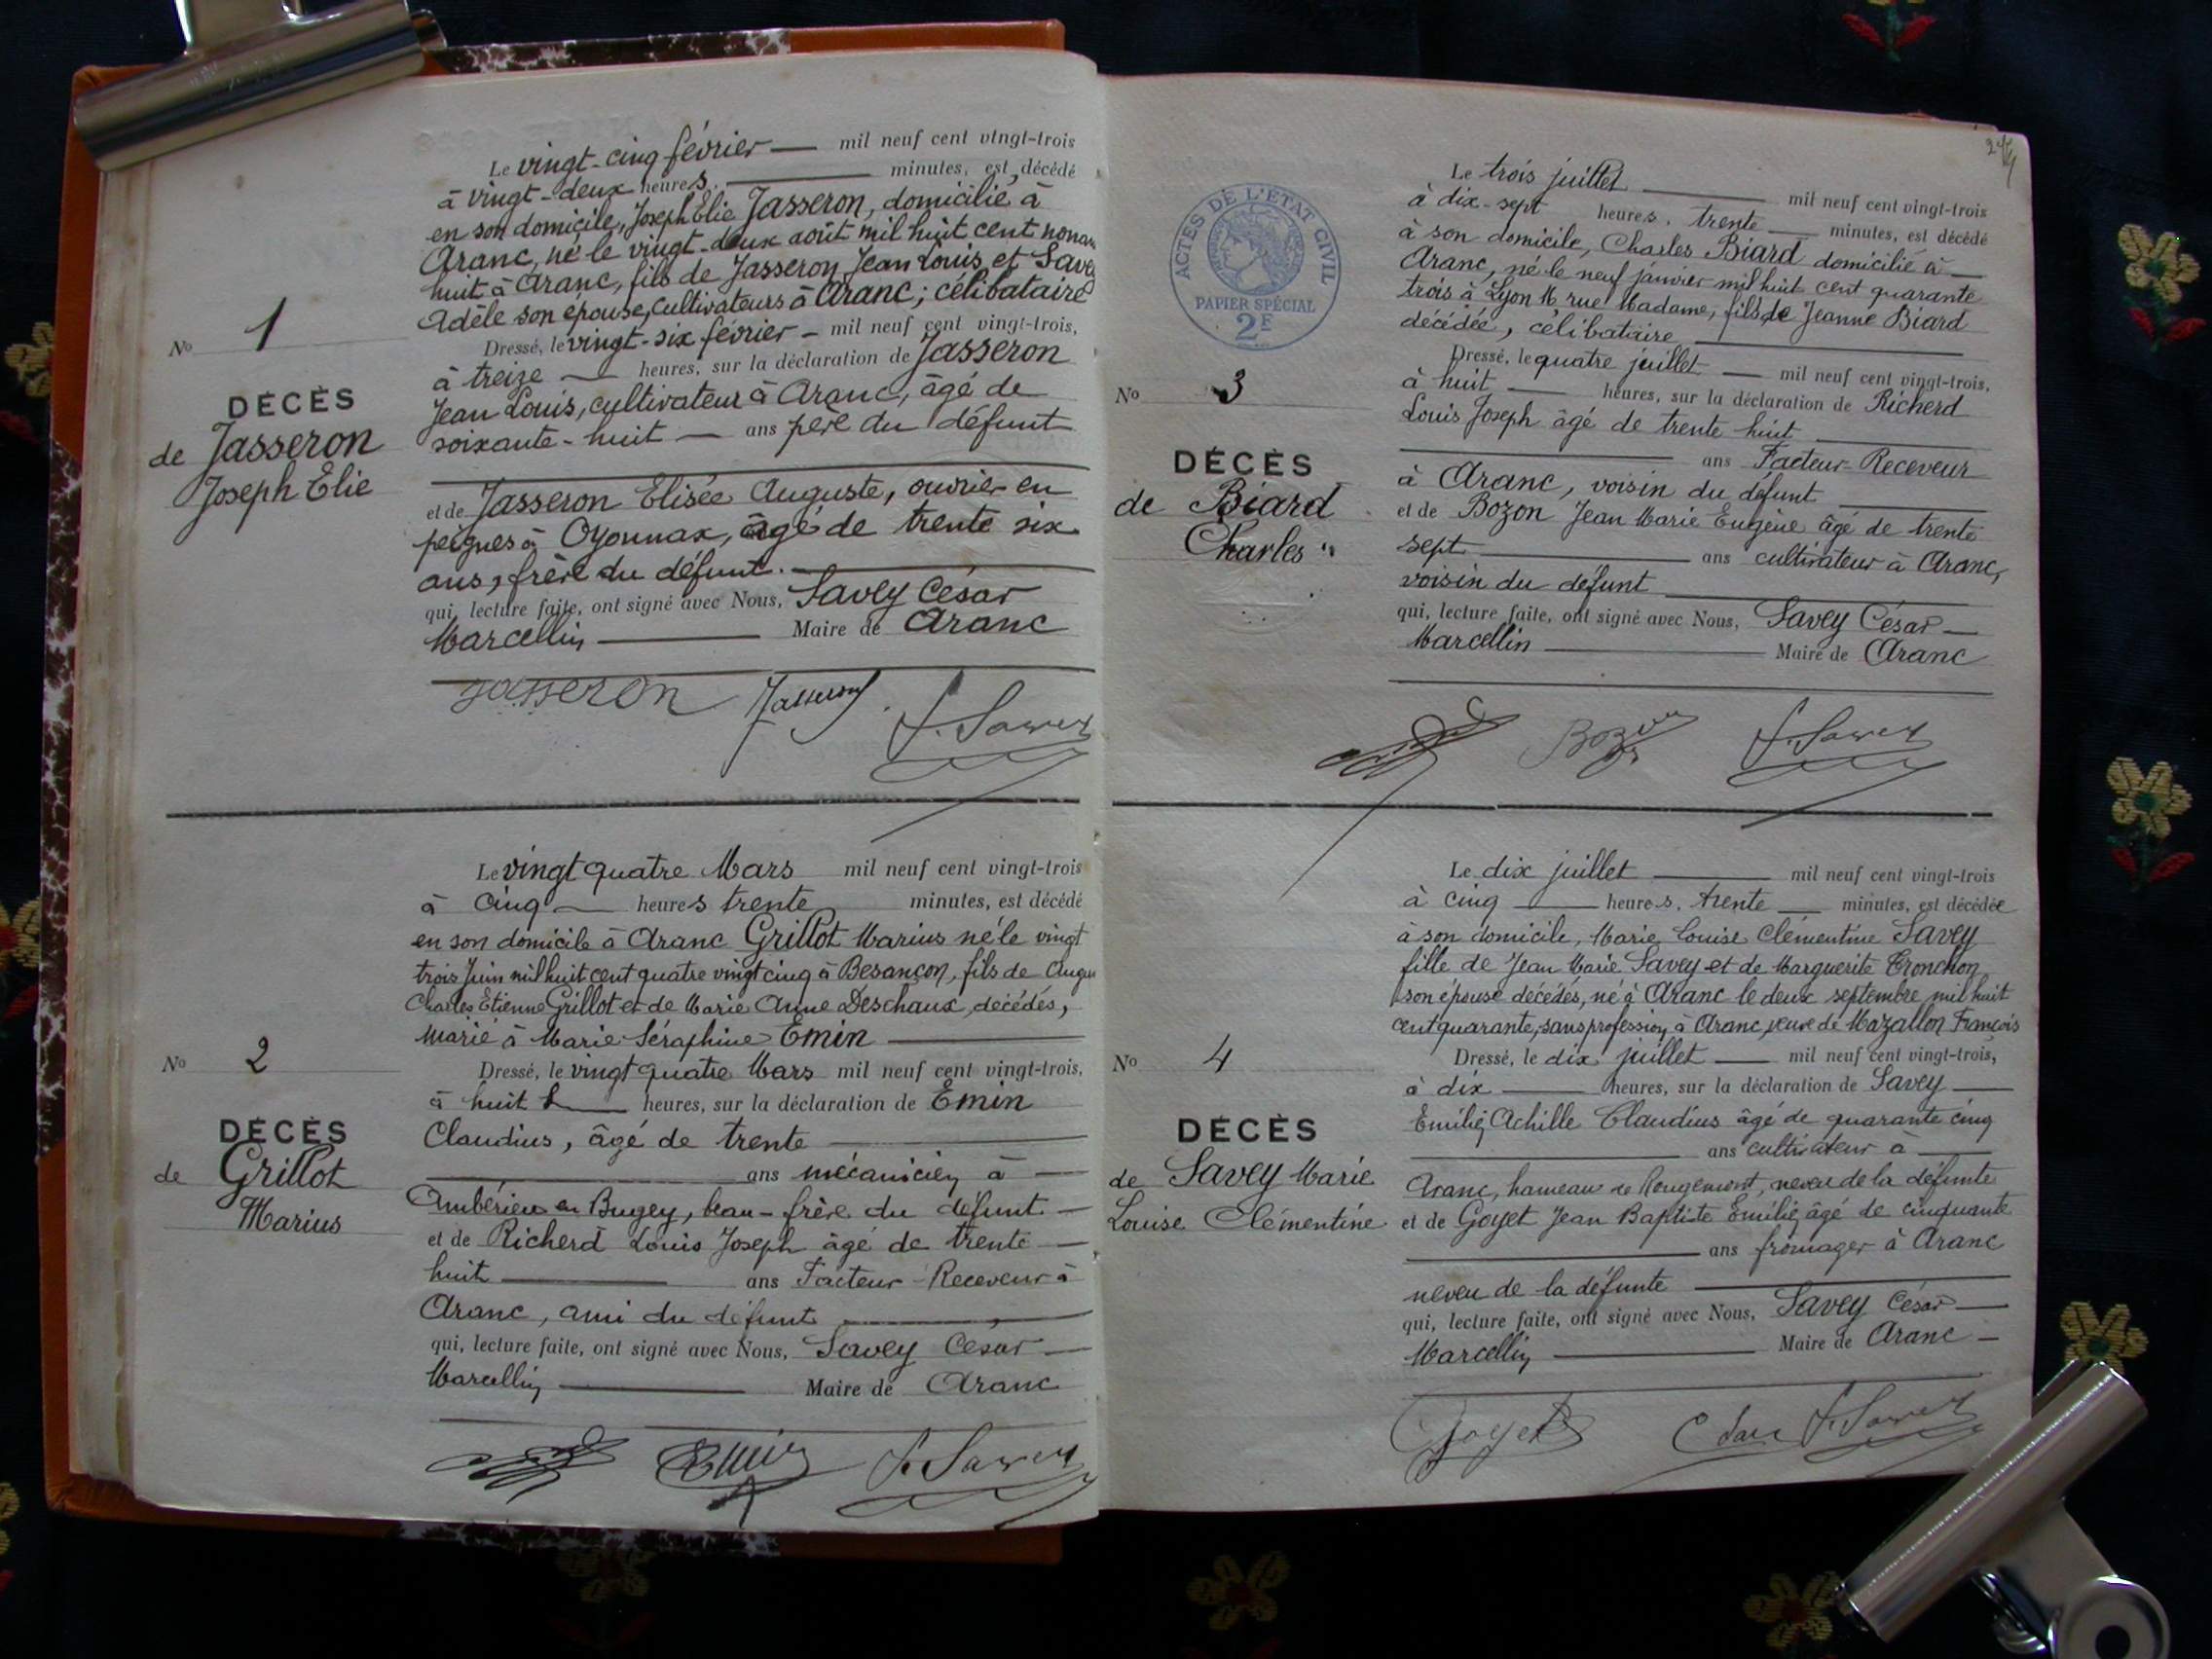 Le vingt-cinq février — mil neuf cent vingt-trois
à vingt-deux heures. — minutes, est décédé
en son domicile, Joseph Elie Jasseron, domicilié à
Aranc, né le vingt-deux août mil huit cent nonan
huit à Aranc, fils de Jasseron Jean Louis et Save
Adèle son épouse, cultivateurs à Aranc ; célibataire
Dressé, le vingt-six février — mil neuf cent vingt-trois,
à treize — heures, sur la déclaration de Jasseron
Jean Louis, cultivateur à Aranc, âgé de
soixante-huit — ans père du défunt
et de Jasseron Elisée Auguste, ouvrier en
peignes à Oyonnax, âgé de trente six
ans, frère du défunt. —
qui, lecture faite, ont signé avec Nous, Savey César
Marcellin — Maire de Aranc
Jasseron Jasseron J. Savey
No 1
DÉCÈS
de Jasseron
Joseph Elie
Le vingt quatre Mars mil neuf cent vingt-trois
à cinq — heures trente minutes, est décédé
en son domicile à Aranc Grillot Marius né le vingt
trois Juin mil huit cent quatre vingt cinq à Besançon, fils de Augu
Charles Etienne Grillot et de Marie Anne Deschaux, décédés,
marié à Marie Séraphine Emin —
Dressé, le vingt quatre Mars mil neuf cent vingt-trois,
à huit — heures, sur la déclaration de Emin
Claudius, âgé de trente —
— ans mécanicien à —
Ambérieu en Bugey, beau-frère du défunt —
et de Richerd Louis Joseph âgé de trente —
huit — ans Facteur-Receveur à
Aranc, ami du défunt —
qui, lecture faite, ont signé avec Nous, Savey César —
Marcellin — Maire de Aranc
Emin J. Savey
No 2
DÉCÈS
de Grillot
Marius
ACTES DE L'ÉTAT CIVIL
PAPIER SPÉCIAL
2F
Le trois juillet — mil neuf cent vingt-trois
à dix-sept heures. trente — minutes, est décédé
à son domicile, Charles Biard domicilié à —
Aranc, né le neuf janvier mil huit cent quarante
trois à Lyon 16 rue Madame, fils de Jeanne Biard
décédée, célibataire —
Dressé, le quatre juillet — mil neuf cent vingt-trois,
à huit — heures, sur la déclaration de Richerd
Louis Joseph âgé de trente huit —
— ans Facteur-Receveur
à Aranc, voisin du défunt —
et de Bozon Jean Marie Eugène âgé de trente
sept — ans cultivateur à Aranc,
voisin du défunt —
qui, lecture faite, ont signé avec Nous, Savey César —
Marcellin — Maire de Aranc
Bozon J. Savey
No 3
DÉCÈS
de Biard
Charles
Le dix juillet — mil neuf cent vingt-trois
à cinq — heures. trente — minutes, est décédée
à son domicile, Marie Louise Clémentine Savey
fille de Jean Marie Savey et de Marguerite Tronchon
son épouse décédés, né à Aranc le deux septembre mil huit
cent quarante, sans profession, à Aranc, veuve de Mazallon François
Dressé, le dix juillet — mil neuf cent vingt-trois,
à dix — heures, sur la déclaration de Savey —
Emilie, Achille Claudius âgé de quarante cinq
— ans cultivateur à —
Aranc, hameau de Rougemont, neveu de la défunte
et de Goyet Jean Baptiste Emilie, âgé de cinquante
— ans fromager à Aranc
neveu de la défunte —
qui, lecture faite, ont signé avec Nous, Savey César —
Marcellin — Maire de Aranc —
Goyet J. Savey
No 4
DÉCÈS
de Savey Marie
Louise Clémentine